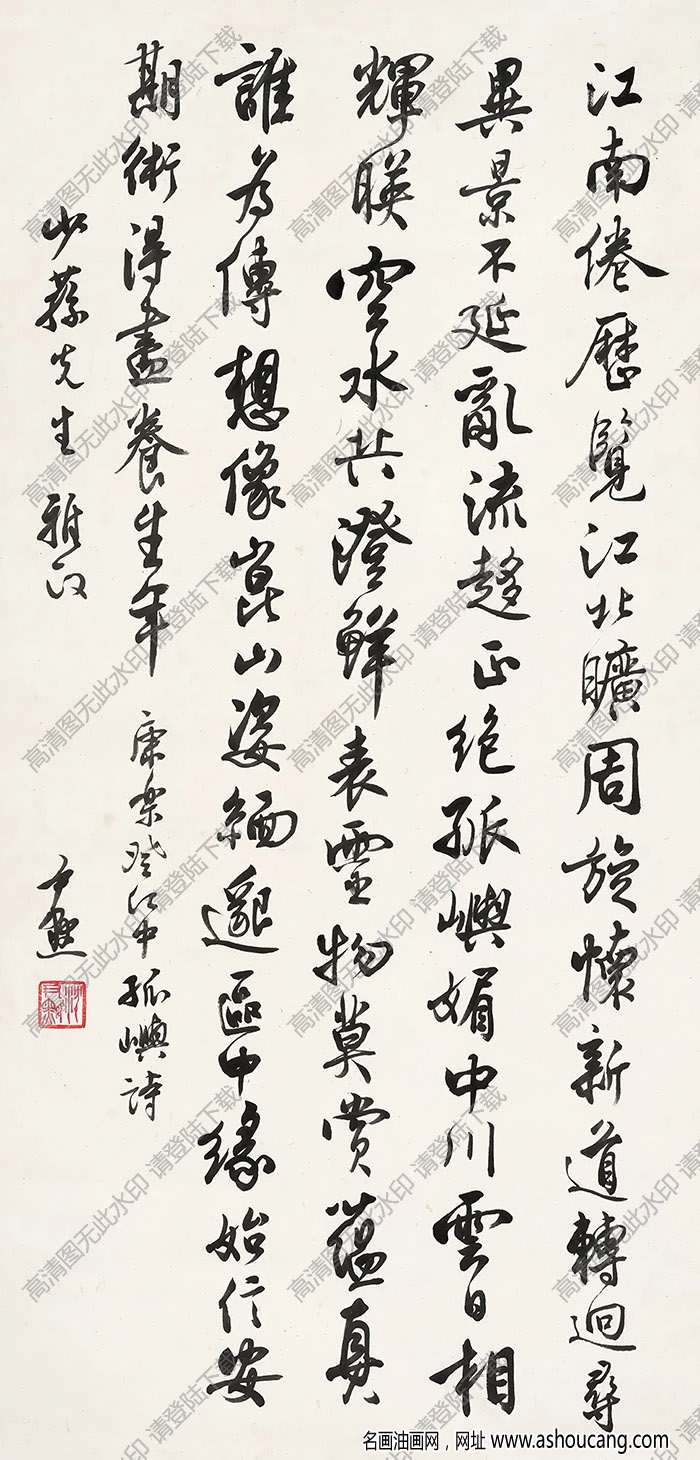 江南倦歷覽江北曠周旋懷新道轉迥尋
異景不延亂流趍正絕孤嶼媚中川雲日相
輝暎空水共澄鮮表靈物莫賞蘊真
誰為傳想像崑山姿緬邈區中緣始信安
期術得盡養生年 康樂登江中孤嶼詩
少蓀先生雅政 尹默
沈尹默
高清图无此水印 请登陆下载
名画油画网，网址 www.ashoucang.com